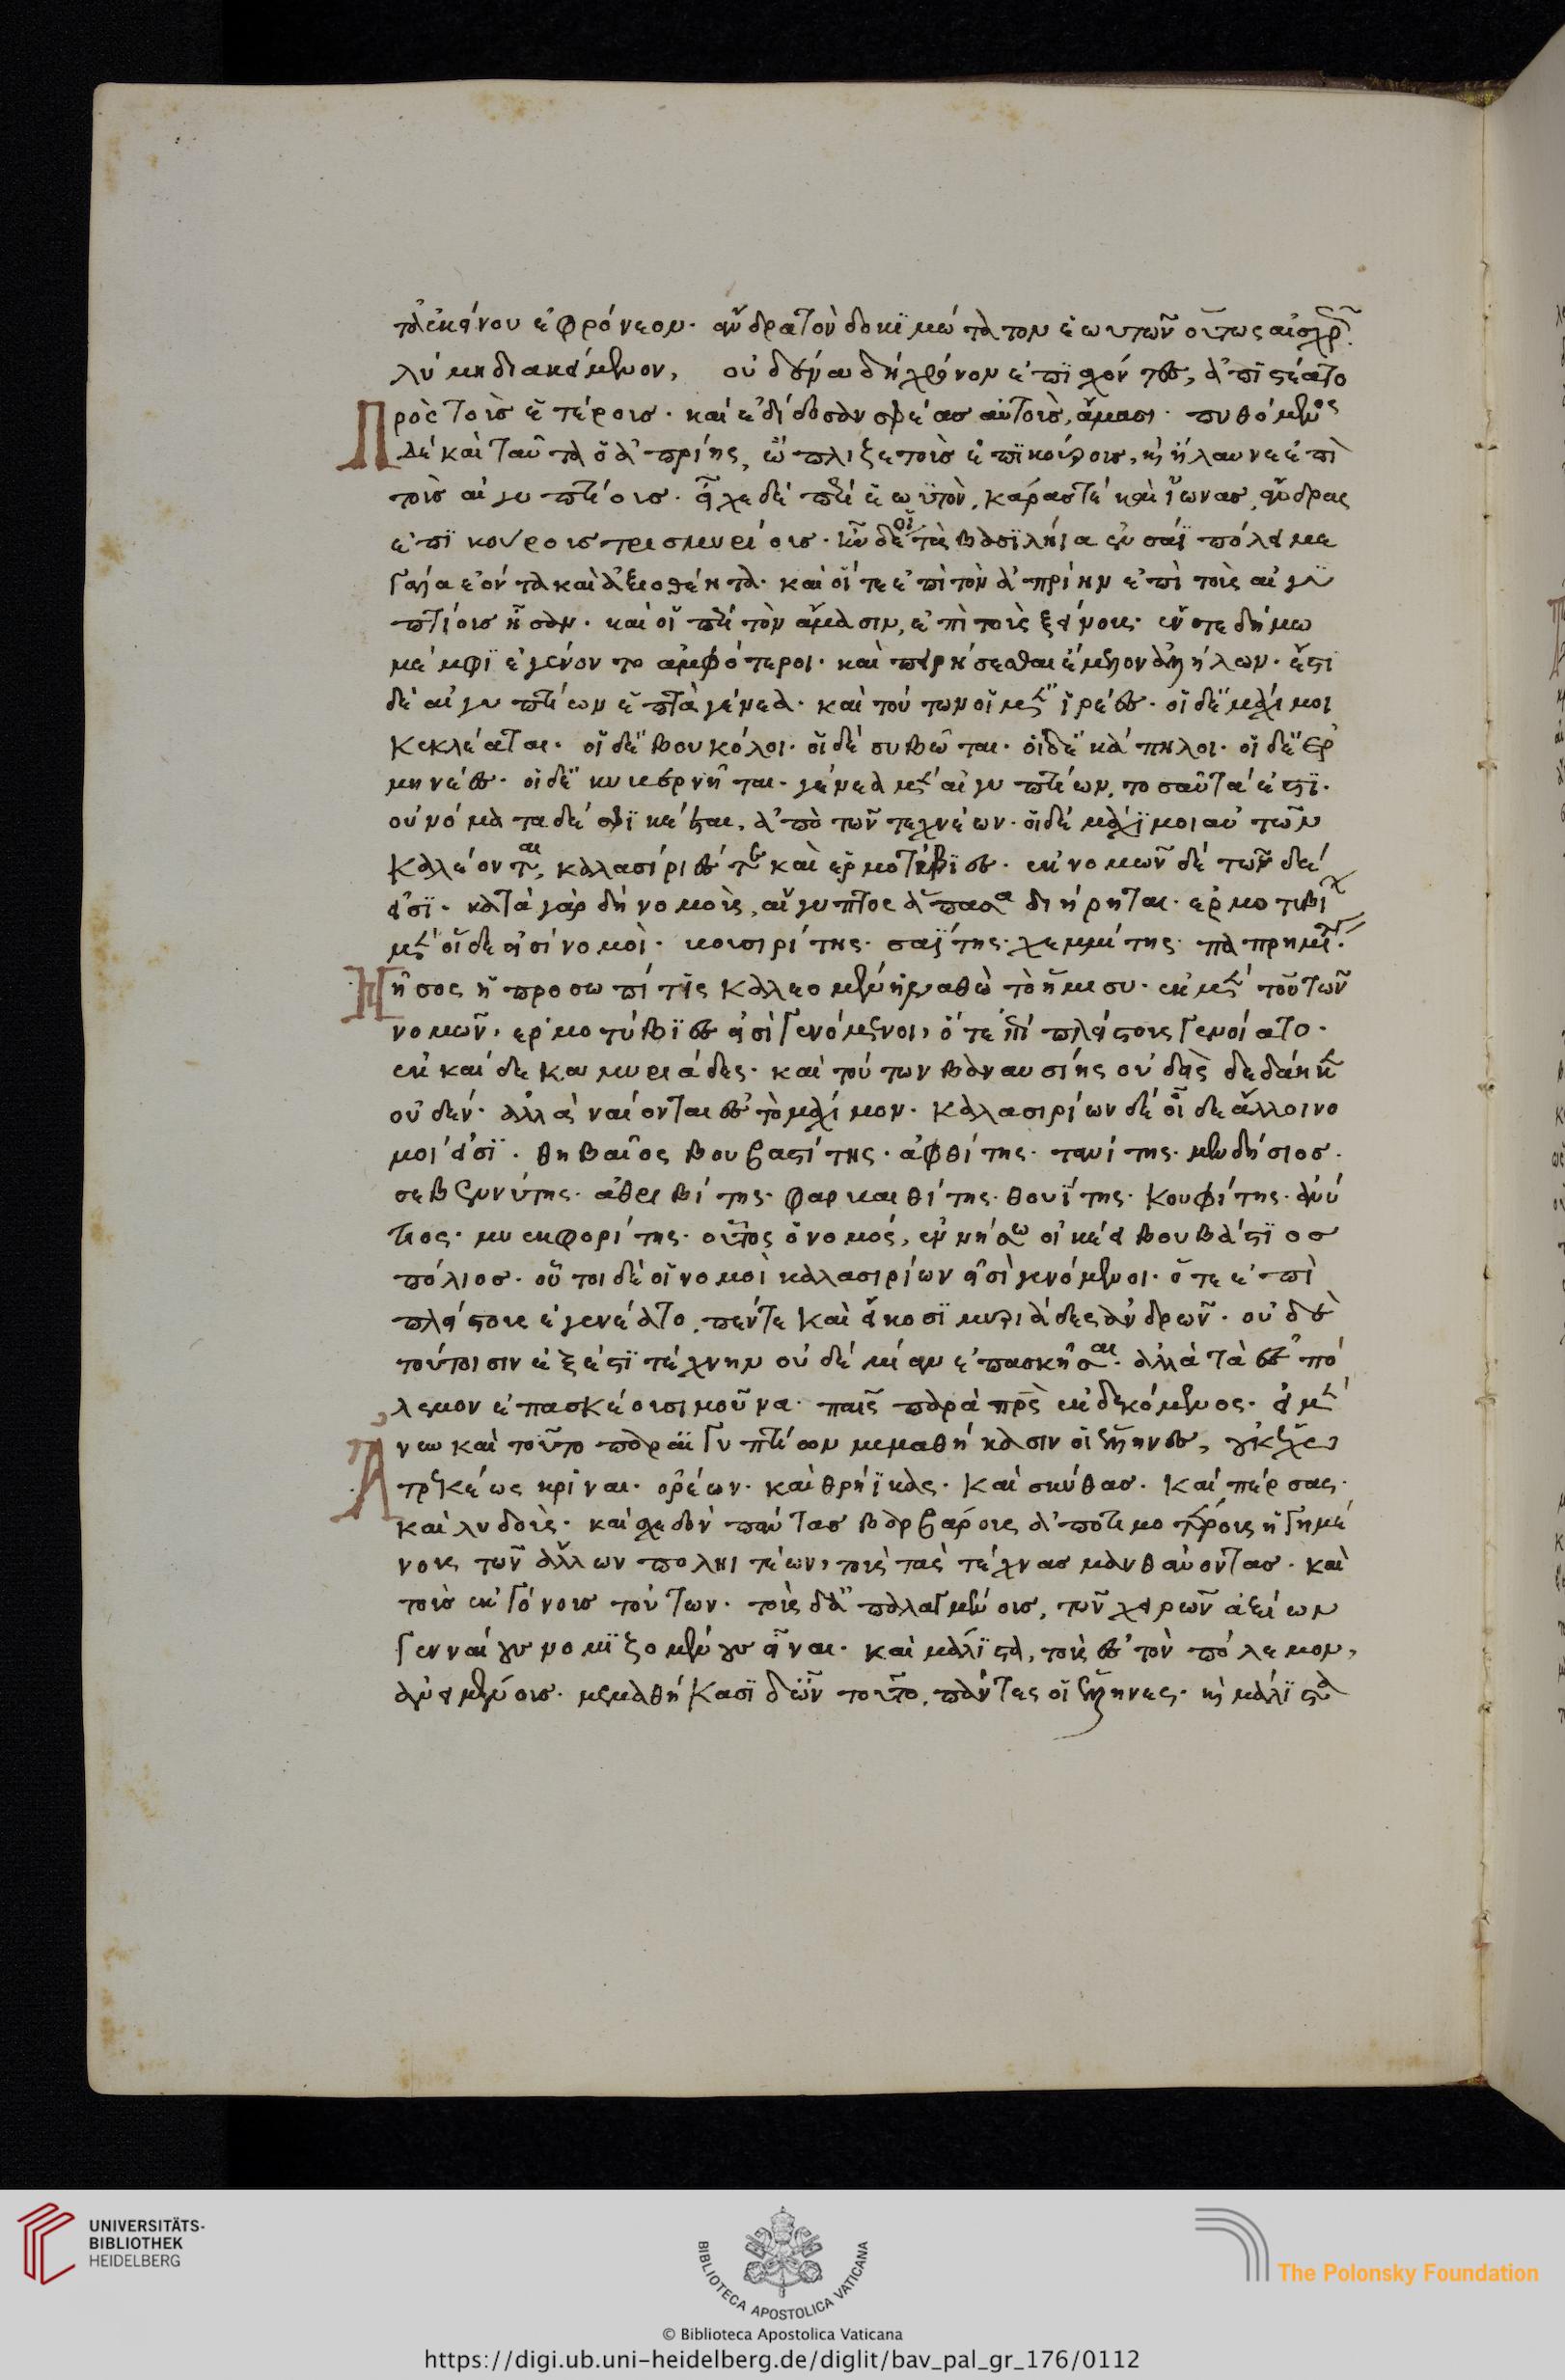 τὰ ἐκείνου ἐφρόνεον· ἄνδρα τὸν δοκιμώτατον ἑωυτῶν οὕτως αἰσχρῆ
λύμη διακείμενον, οὐδένα δὴ χρόνον ἐπισχόντες, ἀπιστέατο
πρὸς τοὺς ἑτέρους· καὶ ἐδίδοσαν σφέας αὐτοὺς, ἀμάσι· πυθόμενος
δὲ καὶ ταῦτα ὁ ἀπρίης, ὥπλιζε τοὺς ἐπικούρους, καὶ ἤλαυνε ἐπὶ
τοὺς αἰγυπτίους· εἶχε δὲ περὶ ἑωυτὸν, κᾶράς τε καὶ ἴωνας, ἄνδρας
ἐπικούρους τρισμυρίους· ἦν δέ οἱ τὰ βασιλήϊα ἐν σάϊ πόλει με
γάλα ἐόντα καὶ ἀξιοθέητα· καὶ οἵ τε ἐπὶ τὸν ἀπρίην ἐπὶ τοὺς αἰγυ
πτίους ἦσαν· καὶ οἱ περὶ τὸν ἄμασιν, ἐπὶ τοὺς ξείνους· ἔν τε δὴ μω
μέμφι ἐγένοντο ἀμφότεροι· καὶ πειρήσεσθαι ἔμελλον ἀλλήλων· ἔστι
δὲ αἰγυπτίων ἑπτὰ γένεα· καὶ τούτων οἱ μὲν ἱρέες· οἱ δὲ μάχιμοι
κεκλέαται· οἱ δὲ βουκόλοι· οἱ δὲ συβῶται· οἱ δὲ κάπηλοι· οἱ δὲ ἑρ
μηνέες· οἱ δὲ κυβερνῆται· γένεα μὲν αἰγυπτίων, τοσαῦτά ἐστι·
οὐνόματα δέ σφι κέεται, ἀπὸ τῶν τεχνέων· οἱ δὲ μάχιμοι αὐτῶν
καλέονται, καλασίριές τε καὶ ἑρμοτύβιες· ἐκ νομῶν δὲ τῶνδε
εἰσι· κατὰ γὰρ δὴ νομοὺς, αἴγυπτος ἅπασα διήρηται· ἑρμοτυβι
μὲν οἵδε εἰσὶ νομοὶ· βουσιρίτης· σαΐτης· χεμμίτης· παπρημίτης·
νῆσος ἡ προσωπῖτις καλεομένη· ναθὼ τὸ ἥμισυ· ἐκ μὲν τούτων
νομῶν, ἑρμοτύβιες εἰσὶ γενόμενοι, ὅτε ἐπὶ πλείστους γενοίατο·
ἑκκαίδεκα μυριάδες· καὶ τούτων βαναυσίης οὐδεὶς δεδάηκε
οὐδέν· ἀλλὰ ναίονται ἐς τὸ μάχιμον· καλασιρίων δὲ οἵδε ἄλλοι νο
μοί εἰσι· θηβαῖος βουβαστίτης· ἀφθίτης· τανίτης· μενδήσιος·
σεβεννύτης· ἀθριβίτης· φαρβαιθίτης· θουΐτης· κουφίτης· ἀνύ
τιος· μυεκφορίτης· οὗτος ὁ νομός, ἐν νήσω οἰκέει βουβάστιος
πόλιος· οὗτοι δὲ οἱ νομοὶ καλασιρίων εἰσὶ γενόμενοι· ὅτε ἐπὶ
πλείστους ἐγενέατο, πέντε καὶ εἴκοσι μυριάδες ἀνδρῶν· οὐδὲ
τούτοισιν ἔξεστι τέχνην οὐδεμίαν ἐπασκῆσαι· ἀλλὰ τὰ ἐς πό
λεμον ἐπασκέουσι μοῦνα· παῖς παρὰ πρὸς ἐκδεκόμενος· εἰ μὲν
νεω καὶ τοῦτο παρ' αἰγυπτίων μεμαθήκασιν οἱ ἕλληνες, οὐκ ἔχω
ἀτρεκέως κρῖναι· ὁρέων· καὶ θρήϊκας· καὶ σκύθας· καὶ πέρσας·
καὶ λυδοὺς· καὶ σχεδὸν πάντας βαρβάρους ἀποτιμοτέρους ἡγημέ
νους τῶν ἄλλων πολιητέων, τοὺς τὰς τέχνας μανθάνοντας· καὶ
τοὺς ἐκγόνους τούτων· τοὺς δὲ ἀπαλλαγμένους, τῶν χειρωναξιέων
γενναίους νομιζομένους εἶναι· καὶ μάλιστα, τοὺς ἐς τὸν πόλεμον,
ἀνειμένους· μεμαθήκασι δ' ὦν τοῦτο, πάντες οἱ ἕλληνες· καὶ μάλιστα
UNIVERSITÄTS-
BIBLIOTHEK
HEIDELBERG
BIBLIOTECA APOSTOLICA VATICANA
The Polonsky Foundation
© Biblioteca Apostolica Vaticana
https://digi.ub.uni-heidelberg.de/diglit/bav_pal_gr_176/0112